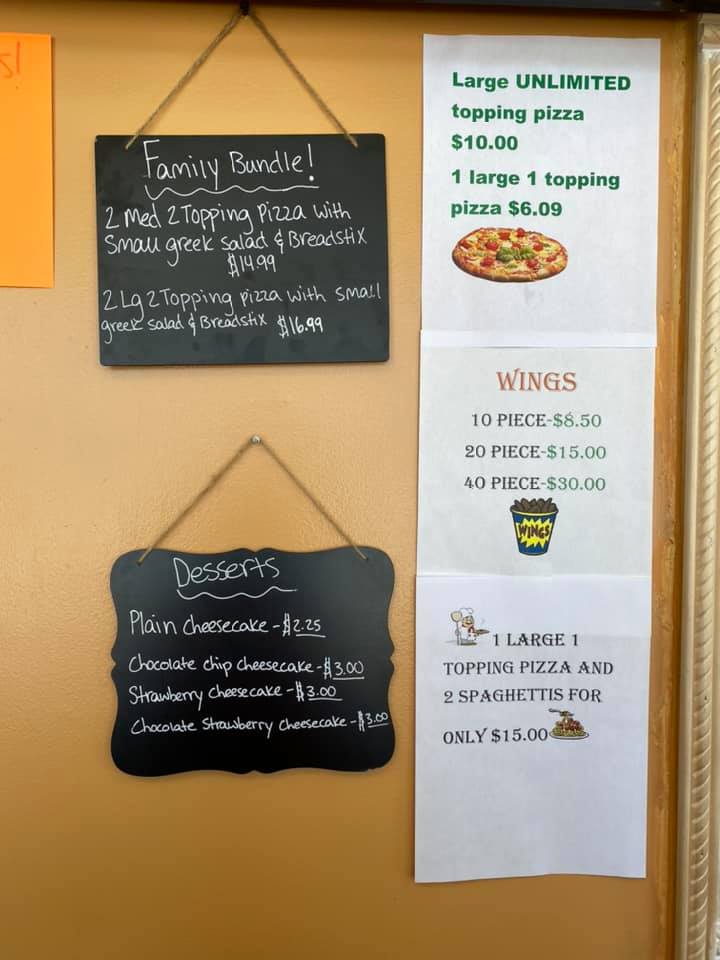 s!
Family Bundle!
2 Med 2 Topping Pizza with
Small greek salad & Breadstix
$14.99
2 Lg 2 Topping pizza with small
greek salad & Breadstix $16.99
Desserts
Plain cheesecake - $2.25
Chocolate chip cheesecake - $3.00
Strawberry cheesecake - $3.00
Chocolate Strawberry Cheesecake - $3.00
Large UNLIMITED
topping pizza
$10.00
1 large 1 topping
pizza $6.09
WINGS
10 PIECE-$8.50
20 PIECE-$15.00
40 PIECE-$30.00
WINGS
1 LARGE 1
TOPPING PIZZA AND
2 SPAGHETTIS FOR
ONLY $15.00